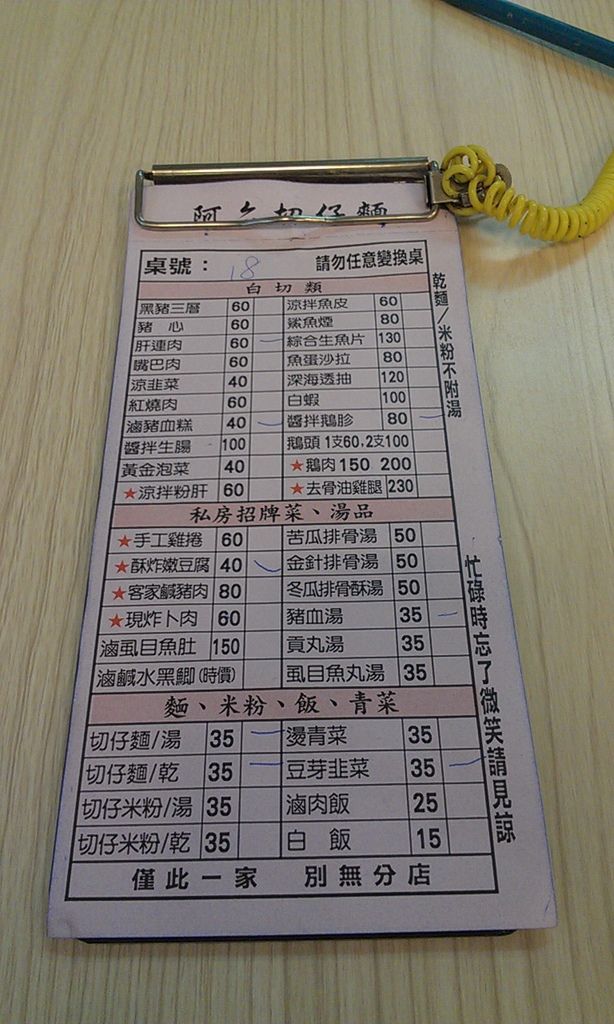 阿 切仔麵
桌號： 18 請勿任意變換桌
白切類
黑豬三層 60 涼拌魚皮 60
豬 心 60 鯊魚煙 80
肝連肉 60 綜合生魚片 130
嘴巴肉 60 魚蛋沙拉 80
涼韭菜 40 深海透抽 120
紅燒肉 60 白蝦 100
滷豬血糕 40 醬拌鵝胗 80
醬拌生腸 100 鵝頭 1支60.2支100
黃金泡菜 40 ★鵝肉 150 200
★涼拌粉肝 60 ★去骨油雞腿 230
私房招牌菜、湯品
★手工雞捲 60 苦瓜排骨湯 50
★酥炸嫩豆腐 40 金針排骨湯 50
★客家鹹豬肉 80 冬瓜排骨酥湯 50
★現炸卜肉 60 豬血湯 35
滷虱目魚肚 150 貢丸湯 35
滷鹹水黑鯽(時價) 虱目魚丸湯 35
麵、米粉、飯、青菜
切仔麵/湯 35 燙青菜 35
切仔麵/乾 35 豆芽韭菜 35
切仔米粉/湯 35 滷肉飯 25
切仔米粉/乾 35 白 飯 15
僅此一家 別無分店
乾麵/米粉不附湯
忙碌時忘了微笑請見諒